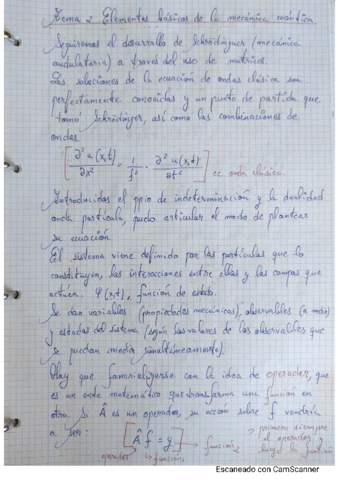 Tema 2. Elementos básicos de la mecánica cuántica
Seguiremos el desarrollo de Schrödinger (mecánica
ondulatoria) a través del uso de matrices.
Las soluciones de la ecuación de ondas clásica son
perfectamente conocidas y un punto de partida que
tomó Schrödinger, así como las combinaciones de
ondas.
[∂²u(x,t)/∂x² = 1/f² · ∂²u(x,t)/∂t²] ec. onda clásica
Introducidos el ppio de indeterminación y la dualidad
onda partícula, pudo articular el modo de plantear
su ecuación
El sistema viene definido por las partículas que lo
constituyen, las interacciones entre ellas y los campos que
actúen. Ψ(x,t), función de estado.
Se dan variables (propiedades mecánicas), observables (a medir)
y estados del sistema (según los valores de los observables que
se puedan medir simultáneamente).
Hay que familiarizarse con la idea de operador, que
es un ente matemático que transforma una función en
otra. Si Â es un operador, su acción sobre f vendría
a ser: [Â f = g] función₂
primero siempre
el operador y
luego la función
operador función₁
Escaneado con CamScanner